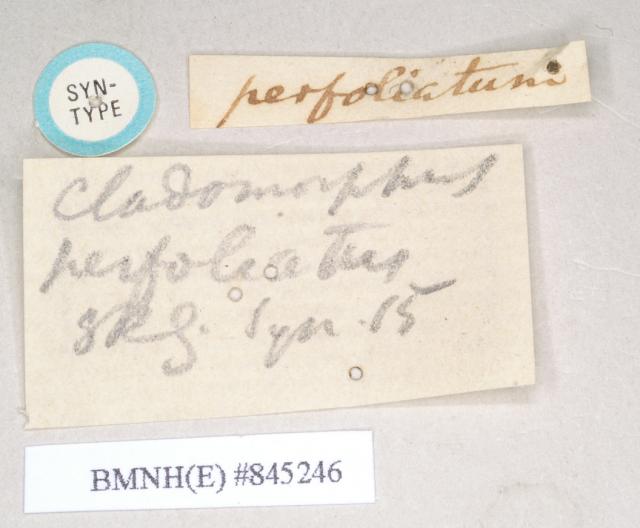 SYN-
TYPE
perfoliatum
Cladomorphus
perfoliatus
Syn. 15
BMNH(E) #845246